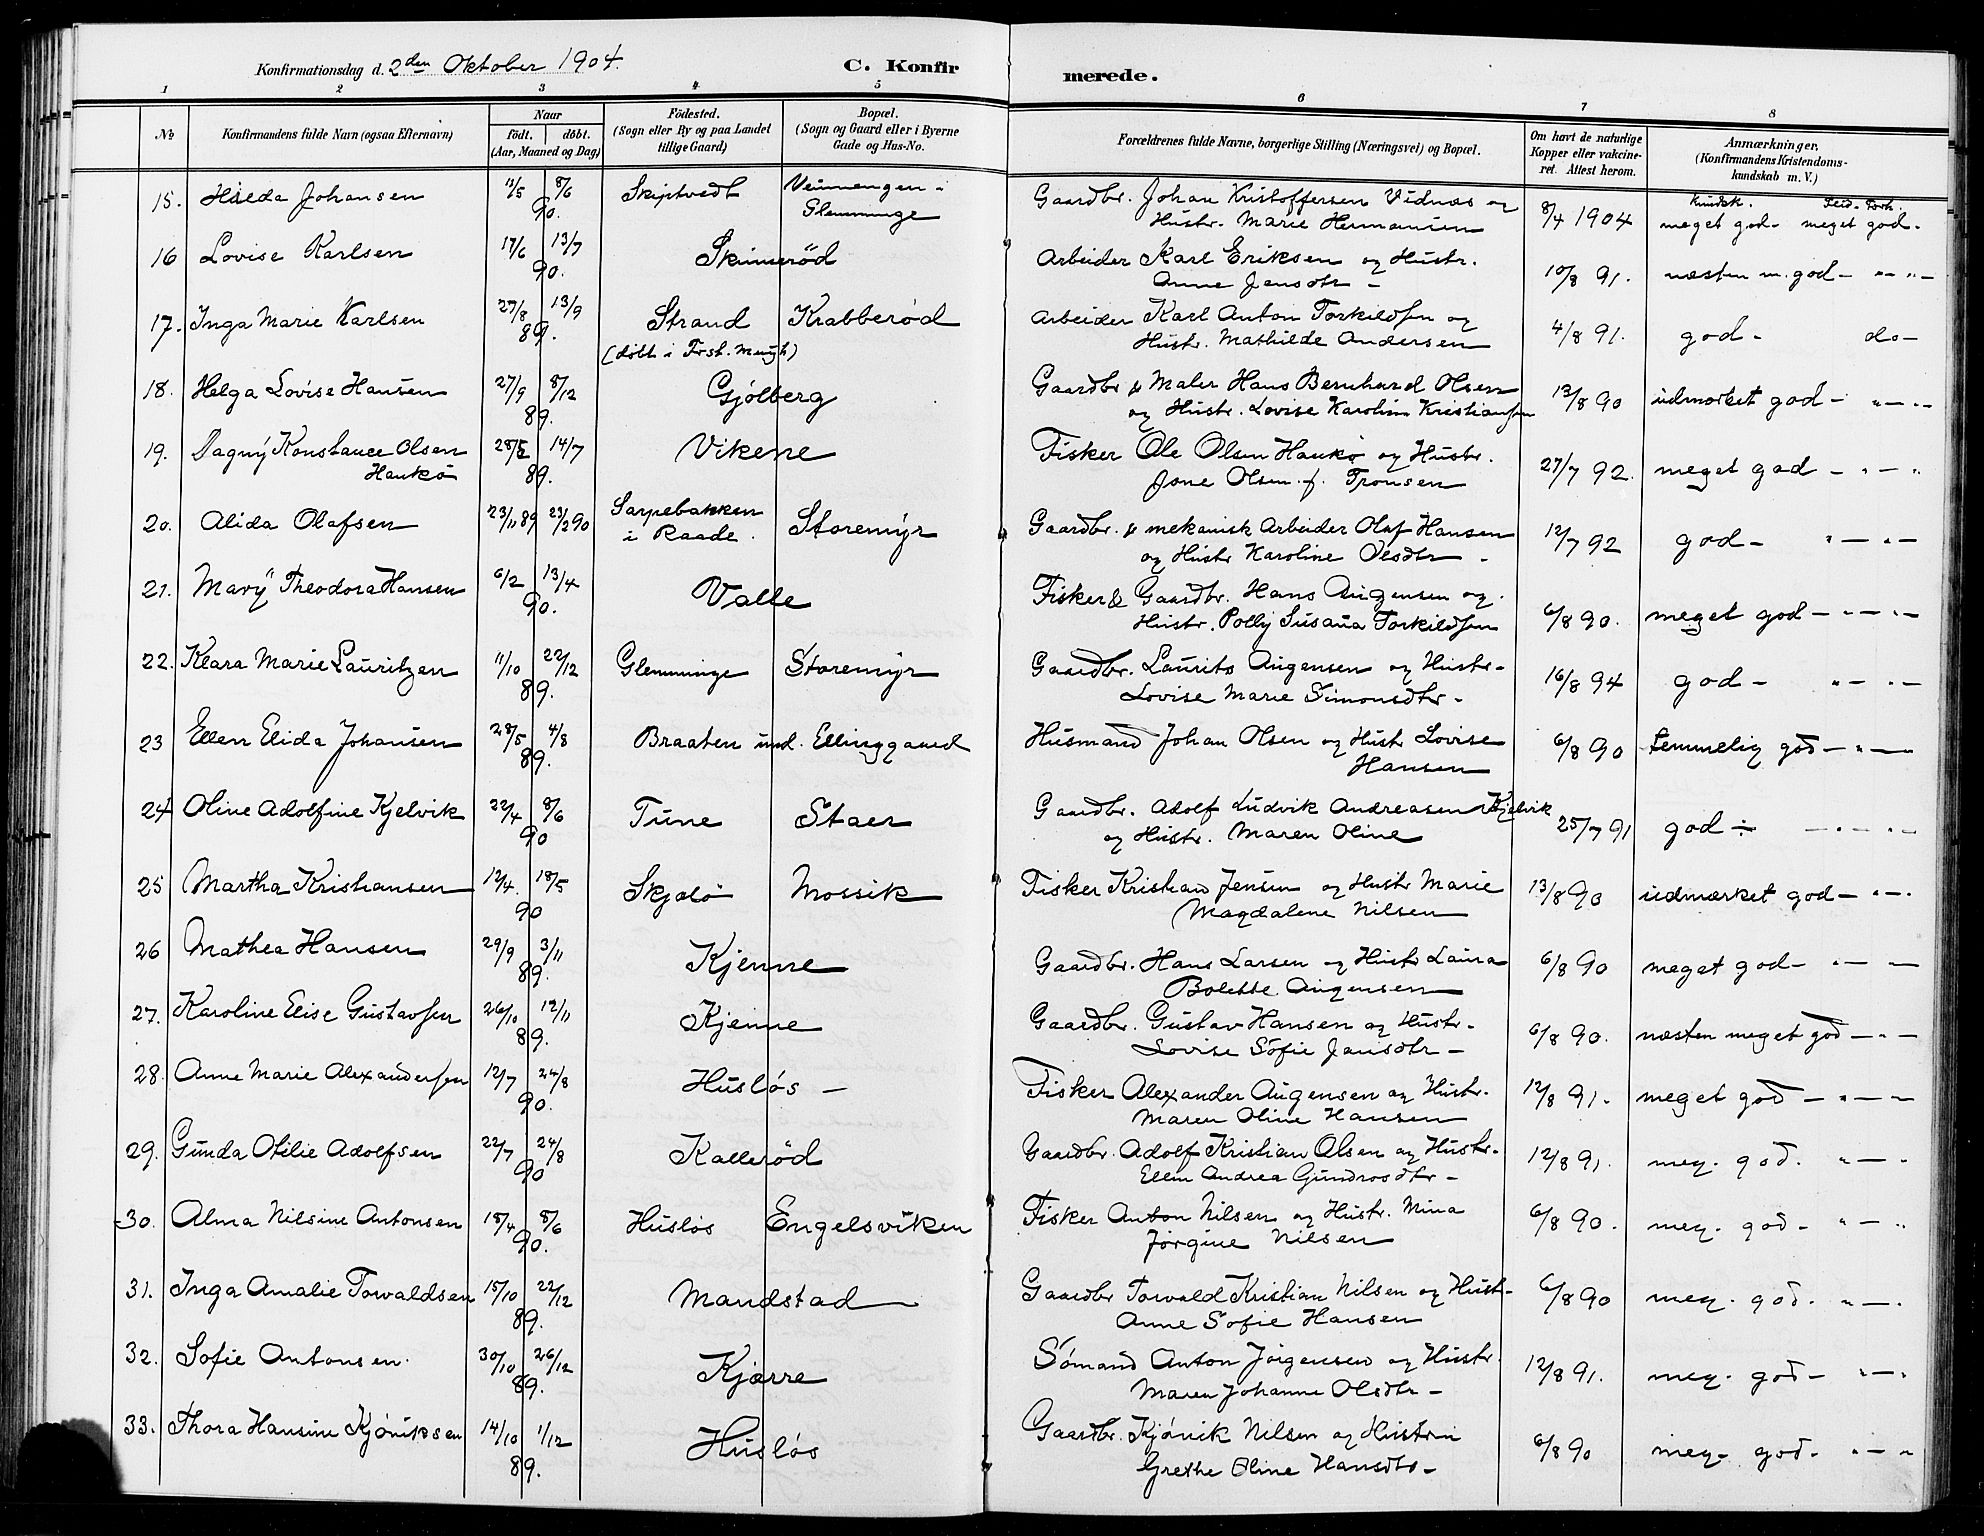 Konfirmationsdag d. 2den Oktober 1904. C. Konfirmerede.
1 2 3 4 5 6 7 8
No Konfirmandens fulde Navn (ogsaa Efternavn) Naar født. døbt. (Aar, Maaned og Dag) Fødested. (Sogn eller By og paa Landet tillige Gaard) Bopæl. (Sogn og Gaard eller i Byerne Gade og Hus-No. Forældrenes fulde Navne, borgerlige Stilling (Næringsvei) og Bopæl. Om havt de naturlige Kopper eller vakcineret. Attest herom. Anmærkninger. (Konfirmandens Kristendomskundskab m. V.)
15. Hilda Johansen 11/5 8/6 90. Skiptvedt i Glemminge Gaardbr. Johan Kristoffersen Vidnæs og 8/4 1904 meget god- meget god-
Hustr. Marie Hermansen
16 Lovise Karlsen 17/6 13/7 90. Skinnerød Arbeider Karl Eriksen og Hustr. 10/8 91. næsten m. god- " - " -
Anne Jensdtr -
17. Inga Marie Karlsen 27/8 13/9 89. Strand Krabberød Arbeider Karl Anton Torkildsen og 4/8 91. god- do-
(døbt i Frst. Mengh) Hustr. Mathilde Andersen
18. Helga Lovise Hansen 27/9 8/12 89. Gjølberg Gaardbr & Maler Hans Bernhard Olsen 13/8 90 udmærket god- " - " -
og Hustr. Lovise Karoline Kristiansen
19. Dagny Konstance Olsen 28/5 14/7 89. Vikene Fisker Ole Olsen Hankø og Hustr. 27/7 92. meget god - " - "
Hankø Jone Olsen f. Tronsen
20. Alida Olafsen 23/11 89 23/2 90 Sarpebakken i Raade. Storemyr Gaardbr. & mekanisk Arbeider Olaf Hansen 12/7 92 god- " - " -
og Hustr Karoline Olsdtr -
21. Mary Theodora Hansen 6/2 13/4 90. Valle Fisker & Gaardbr. Hans Augensen og 6/8 90. meget god- " - " -
Hustr. Polly Susana Torkildsen
22. Klara Marie Lauritzen 11/10 22/12 89. Glemminge Storemyr Gaardbr. Laurits Augensen og Hustr- 16/8 94 god- " - " -
Lovise Marie Simonsdtr-
23 Ellen Elida Johansen 28/5 4/8 89. Braaten und. Ellinggaard Husmand Johan Olsen og Hustr Lovise 6/8 90 temmelig god- " -
Hansen
24 Oline Adolfine Kjelvik 22/4 8/6 90 Tune Staer Gaardbr. Adolf Ludvik Andreasen Kjelvik 25/7 91 god ÷ - " - " -
og Hustr. Maren Oline
25 Martha Kristiansen 12/4. 18/5 90 Skjælø Mossik Fisker Kristian Jensen og Hustr Marie 13/8 90 udmærket god- " - "
Magdalene Nilsen
26 Mathea Hansen 29/9 3/11 89. Kjenne Gaardbr. Hans Larsen og Hustr Laura 6/8 90 meget god- " - -
Bolette Augensen
27. Karoline Elise Gustavsen 26/10 12/11 89. Kjenne Gaardbr. Gustav Hansen og Hustr- 6/8 90. næsten meget god- " -
Lovise Sofie Jansdtr-
28. Anne Marie Alexandersen 12/7 24/8 90. Husløs - Fisker Alexander Augensen og Hustr. 12/8 91. meget god- " - -
Maren Oline Hansen
29. Gunda Otilie Adolfsen 22/7 24/8 90 Kallerød Gaardbr. Adolf Kristian Olsen og Hustr- 12/8 91. meg. god. " - "
Ellen Andrea Gundrosdtr-
30. Alma Nilsine Antonsen 18/4 8/6 90. Husløs Engelsviken Fisker Anton Nilsen og Hustr. Mina 6/8 90. meg. god- " - "
Jørgine Nilsen
31. Inga Amalie Torvaldsen 15/10 22/12 89. Mandstad Gaardbr Torvald Kristian Nilsen og Hust- 6/8 90 meg. god. " - .
Anne Sofie Hansen
32. Sofie Antonsen. 30/10 26/12 89. Kjærre Sømand Anton Jørgensen og Hustr. 12/8 91. meg. god- " - "
Maren Johanne Olsdtr-
33. Thora Hansine Kjøniksen 14/10 1/12 89. Husløs Gaardbr. Kjønik Nilsen og Hustru 6/8 90 meg- god- " - "
Grethe Oline Hansdtr-